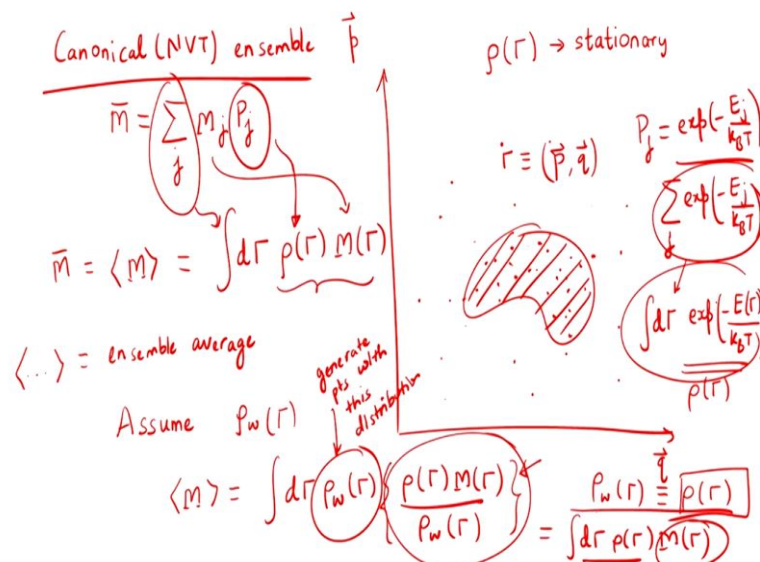 Canonical (NVT) ensemble
m̄ = ∑_j M_j P_j
m̄ = ⟨M⟩ = ∫ dΓ ρ(Γ) M(Γ)
⟨...⟩ = ensemble average
Assume ρ_w(Γ)
generate
pts with
this
distribution
⟨M⟩ = ∫ dΓ ρ_w(Γ) { ρ(Γ) M(Γ) / ρ_w(Γ) }
p⃗
q⃗
ρ(Γ) → stationary
Γ ≡ (p⃗, q⃗)
P_j = exp(-E_j / k_B T)
∑_j exp(-E_j / k_B T)
∫ dΓ exp(-E(Γ) / k_B T)
ρ(Γ)
ρ_w(Γ) ≡ ρ(Γ)
= ∫ dΓ ρ(Γ) M(Γ)